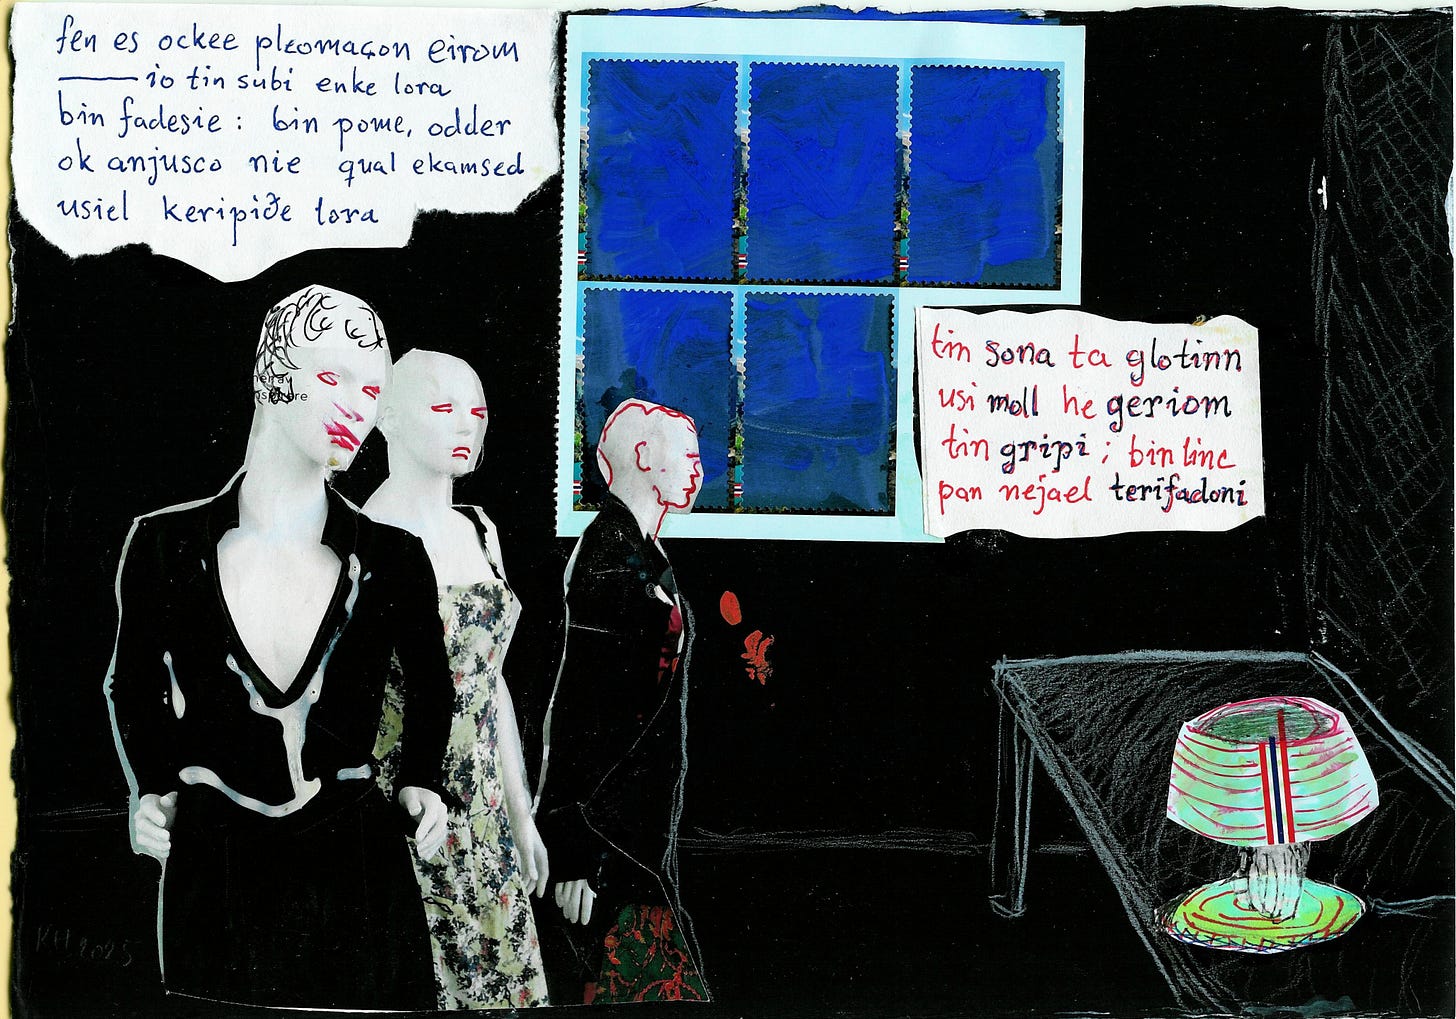 fen es ockee pleomaçon eirom
—— io tin subi enke lora
bin fadesie : bin pome, odder
ok anjusco nie qual ekamsed
usiel keripiðe lora
tin sona ta glotinn
usi moll he geriom
tin gripi ; bin linc
pan nejael terifadoni
2025